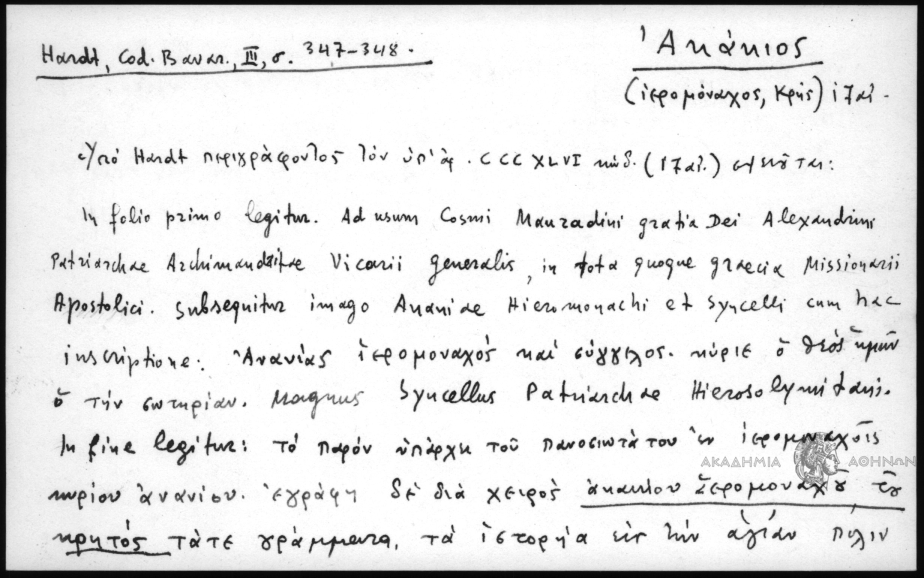 Hardt, Cod. Bavar., III, σ. 347-348.
Ἀκάκιος
(ἱερομόναχος, Κρής) 17 αἰ.
Ὑπό Hardt περιγράφοντος τόν ὑπ' ἀρ. CCCXLVI κώδ. (17 αἰ.)
In folio primo legitur. Ad usum Cosmi Mauradini gratia Dei Alexandrini
Patriarchae Archimandritae Vicarii generalis, in tota quoque graecia Missionarii
Apostolici. Subsequitur imago Ananiae Hieromonachi et Syncelli cum hac
inscriptione: Ἀνανίας ἱερομοναχός καί σύγγιλος. κύριε ὁ θεός ἡμῶν
ὁ τήν σωτηρίαν. Magnus Syncellus Patriarchae Hierosolymitani.
In fine legitur: τό παρόν ὑπάρχη τοῦ πανοσιωτάτου ἐν ἱερομοναχοῖς
ΑΚΑΔΗΜΙΑ ΑΘΗΝΩΝ
κυρίου ἀνανίου. ἐγράφη δέ διά χειρός ἀκακίου ἱερομονάχου τοῦ
κρητός τάτε γράμματα, τά ἱστορηία εἰς τήν ἁγίαν πόλιν